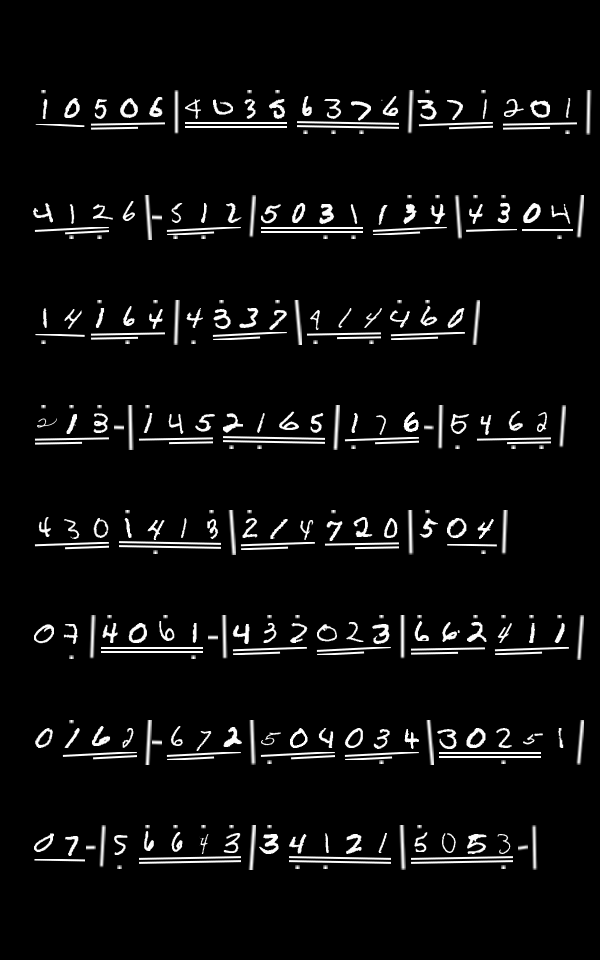 1 0 5 0 6 | 4 0 3 5 6 3 7 6 | 3 7 1 2 0 1 |
4 1 2 6 | - 5 1 2 | 5 0 3 1 1 3 4 | 4 3 0 4 |
1 4 1 6 4 | 4 3 3 7 | 9 1 4 4 6 0 |
2 1 3 - | 1 4 5 2 1 6 5 | 1 7 6 - | 5 4 6 2 |
4 3 0 1 4 1 3 | 2 1 4 7 2 0 | 5 0 4 |
0 7 | 4 0 6 1 - | 4 3 2 0 2 3 | 6 6 2 4 1 1 |
0 1 6 2 | - 6 7 2 | 5 0 4 0 3 4 | 3 0 2 5 1 |
0 7 - | 5 6 6 4 3 | 3 4 1 2 1 | 5 0 5 3 - |